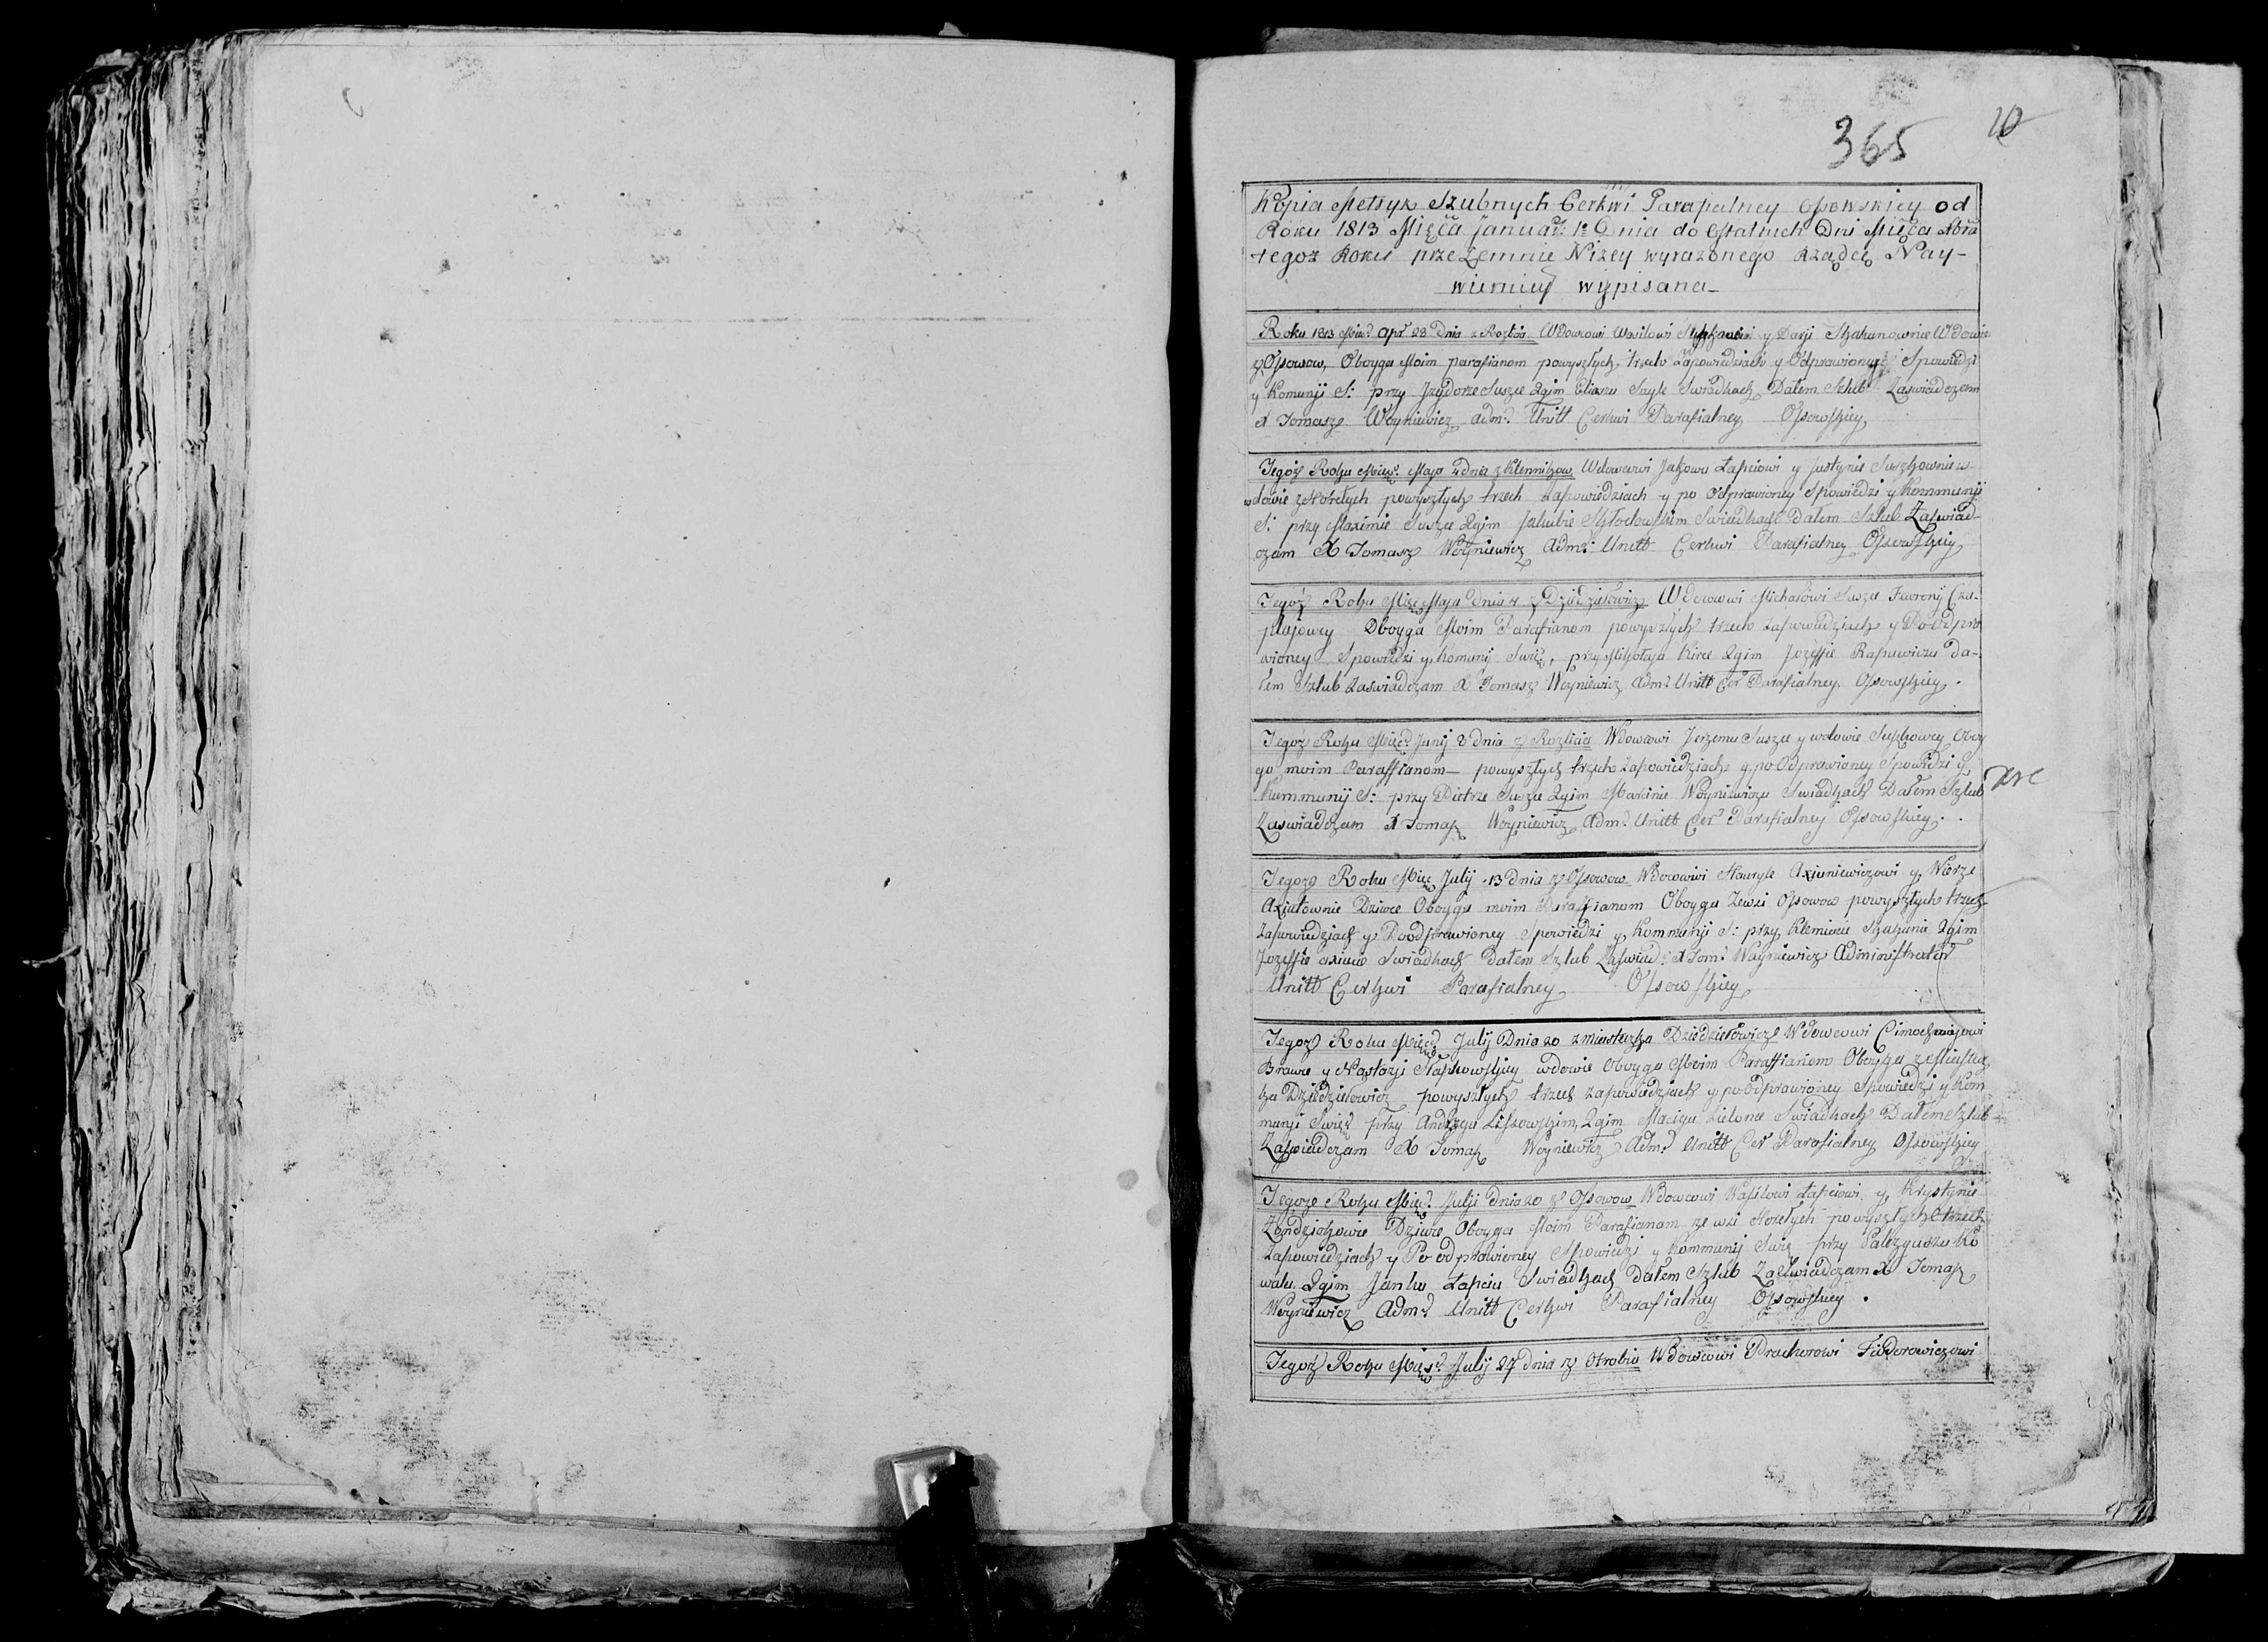 365 10
Kopia Metryk Szubnych Cerkwi Parafialney Ossowskiey od
Roku 1813 Mięca Januar: 1º Dnia do ostatnich Dni Mięca
tegoż Roku przezemnie Niżey wyrażonego Rządcę Nay-
wierniey wypisana
Roku 1813 Mieca Apr 28 Dnia z Wdowcowi Wasilowi y Darji Wdowie
z Ossowow, Oboyga Moim parafianom powyszłych trzech Zapowiedziach y Odprawioney Spowiedzi
y Komunji S: przy Jzydorze Suszce 2gim Świadkach Dałem Szlub Zaświadczam
X Tomasz Woyniewicz Adm: Unitt Cerkwi Parafialney Ossowskiey
Tegoż Roku Mięca Maja 4 dnia z Klennikow Wdowcowi Jakowu Łapciowi y Justynie Suszkownie w-
dowie z Horełych powyszłych trzech Zapowiedziach y po Odprawioney Spowiedzi y Kommunji
S: przy Maximie Suszce 2gim Jakubie Świadkach Dałem Szlub Zaświad-
czam X Tomasz Woyniewicz Adm: Unitt Cerkwi Parafialney Ossowskiey
Tegoż Roku Mięca Maja Dnia 4 z Dziedziełowicz Wdowcowi Michałowi Suszce
Oboyga Moim Parafianom powyszłych trzech zapowiedziach y Po odpra
wioney Spowiedzi y Komunij Swię, przy Mikołaju Kirce 2gim Jozeffie Da-
łem Szlub Zaświadczam X Tomasz Woyniewicz Adm: Unitt Cer Parafialney Ossowskiey.
Tegoż Roku Mięca Junij 8 dnia z Wdowcowi Jerzemu Suszce y wdowie Suszkowey Oboy
ga moim Paraffianom powyszłych trzech Zapowiedziach y po Odprawioney Spowiedzi y
Kommunij S: przy Pietrze Suszce 2gim Marcinie Woyniewiczu Świadkach Dałem Szlub
Zaświadczam X Tomasz Woyniewicz Adm: Unitt Cer Parafialney Ossowskiey.
Tegoż Roku Mięca Julij 13 Dnia z Ossowow Wdowcowi Hauryle Axiuniewiczowi y
Dziwce Oboyga moim Paraffianom Oboyga Zewsi Ossowow powyszłych trzech
Zapowiedziach y Poodprawioney Spowiedzi y Kommunji S: przy Klemiencie 2gim
Jozeffie Świadkach Dałem Szlub Zaświad: X Tom: Woyniewicz Administrator
Unitt Cerkwi Parafialney Ossowskiey
Tegoż Roku Mięca Julij Dnia 20 z miasteczka Dziedziełowicz Wdowcowi
y Nastazji wdowie Oboyga Moim Paraffianom Oboyga z Miastecz
ka Dziedziełowicz powyszłych trzech zapowiedziach y po Odprawioney Spowiedzi y Kom
munji Swię przy Andrzeju Lissowskim, 2gim Macieju Zielonce Świadkach Dałem Szlub
Zaświadczam X Tomasz Woyniewicz Adm: Unitt Cer Parafialney Ossowskiey
Tegoż Roku Mięca Julji Dnia 20 z Ossowow Wdowcowi Wasilowi Łapciowi y Krystynie
Dziwce Oboyga Moim Parafianam ze wsi Horełych powyszłych trzech
Zapowiedziach y Po odprawioney Spowiedzi y Kommunij Swię przy Ko
walu 2gim Janku Łapciu Świadkach Dałem Szlub Zaświadczam X Tomasz
Woyniewicz Adm: Unitt Cerkwi Parafialney Ossowskiey.
Tegoż Roku Mięca Julij 27 Dnia z Otrobia Wdowcowi Prachorowi Fiodorowiczowi